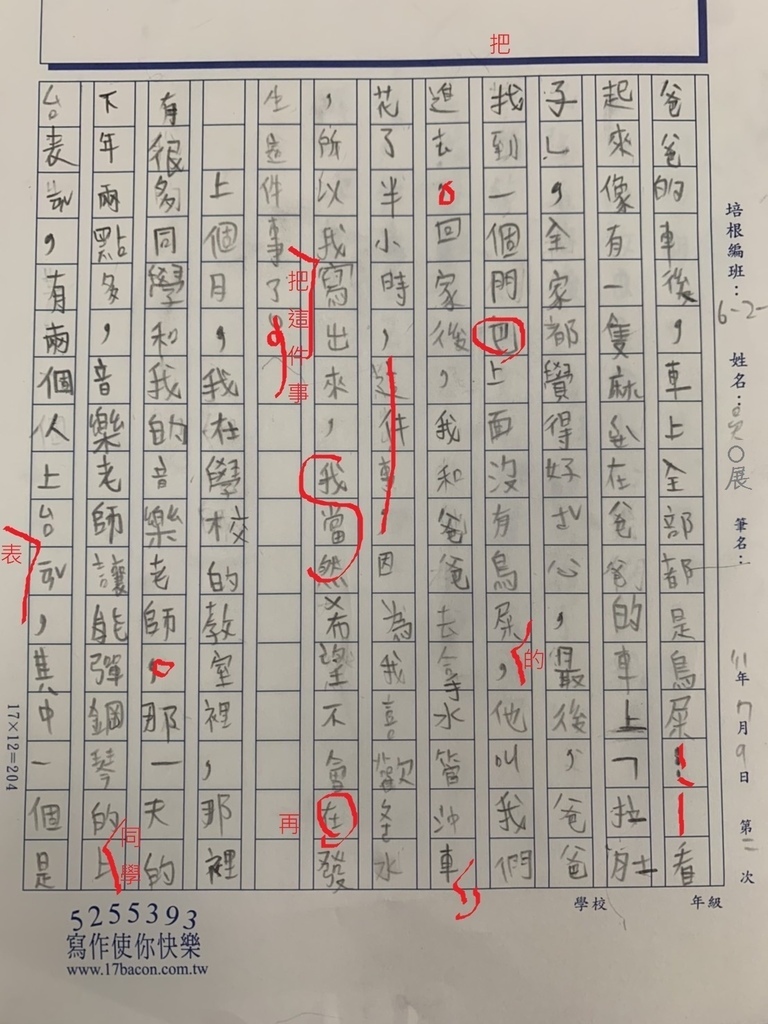 把
培根編班：6-2 姓名：吳○展 筆名： 11年7月9日 第二次
爸爸的車後，車上全部都是鳥屎！看
起來像有一隻麻雀在爸爸的車上「拉肚
子」，全家都覺得好噁心，最後，爸爸
找到一個門巴上面沒有鳥屎，他叫我們
的
進去。回家後，我和爸爸去拿水管沖車
花了半小時，這件事，因為我喜歡水
，所以我寫出來，我當然希望不會在發
把這件事
再
生這件事了。
上個月，我在學校的教室裡，那裡
有很多同學和我的音樂老師，那一天的
下午兩點多，音樂老師讓能彈鋼琴的上
同學
台表演，有兩個人上台演，其中一個是
表
17×12=204
學校 年級
5255393
寫作使你快樂
www.17bacon.com.tw